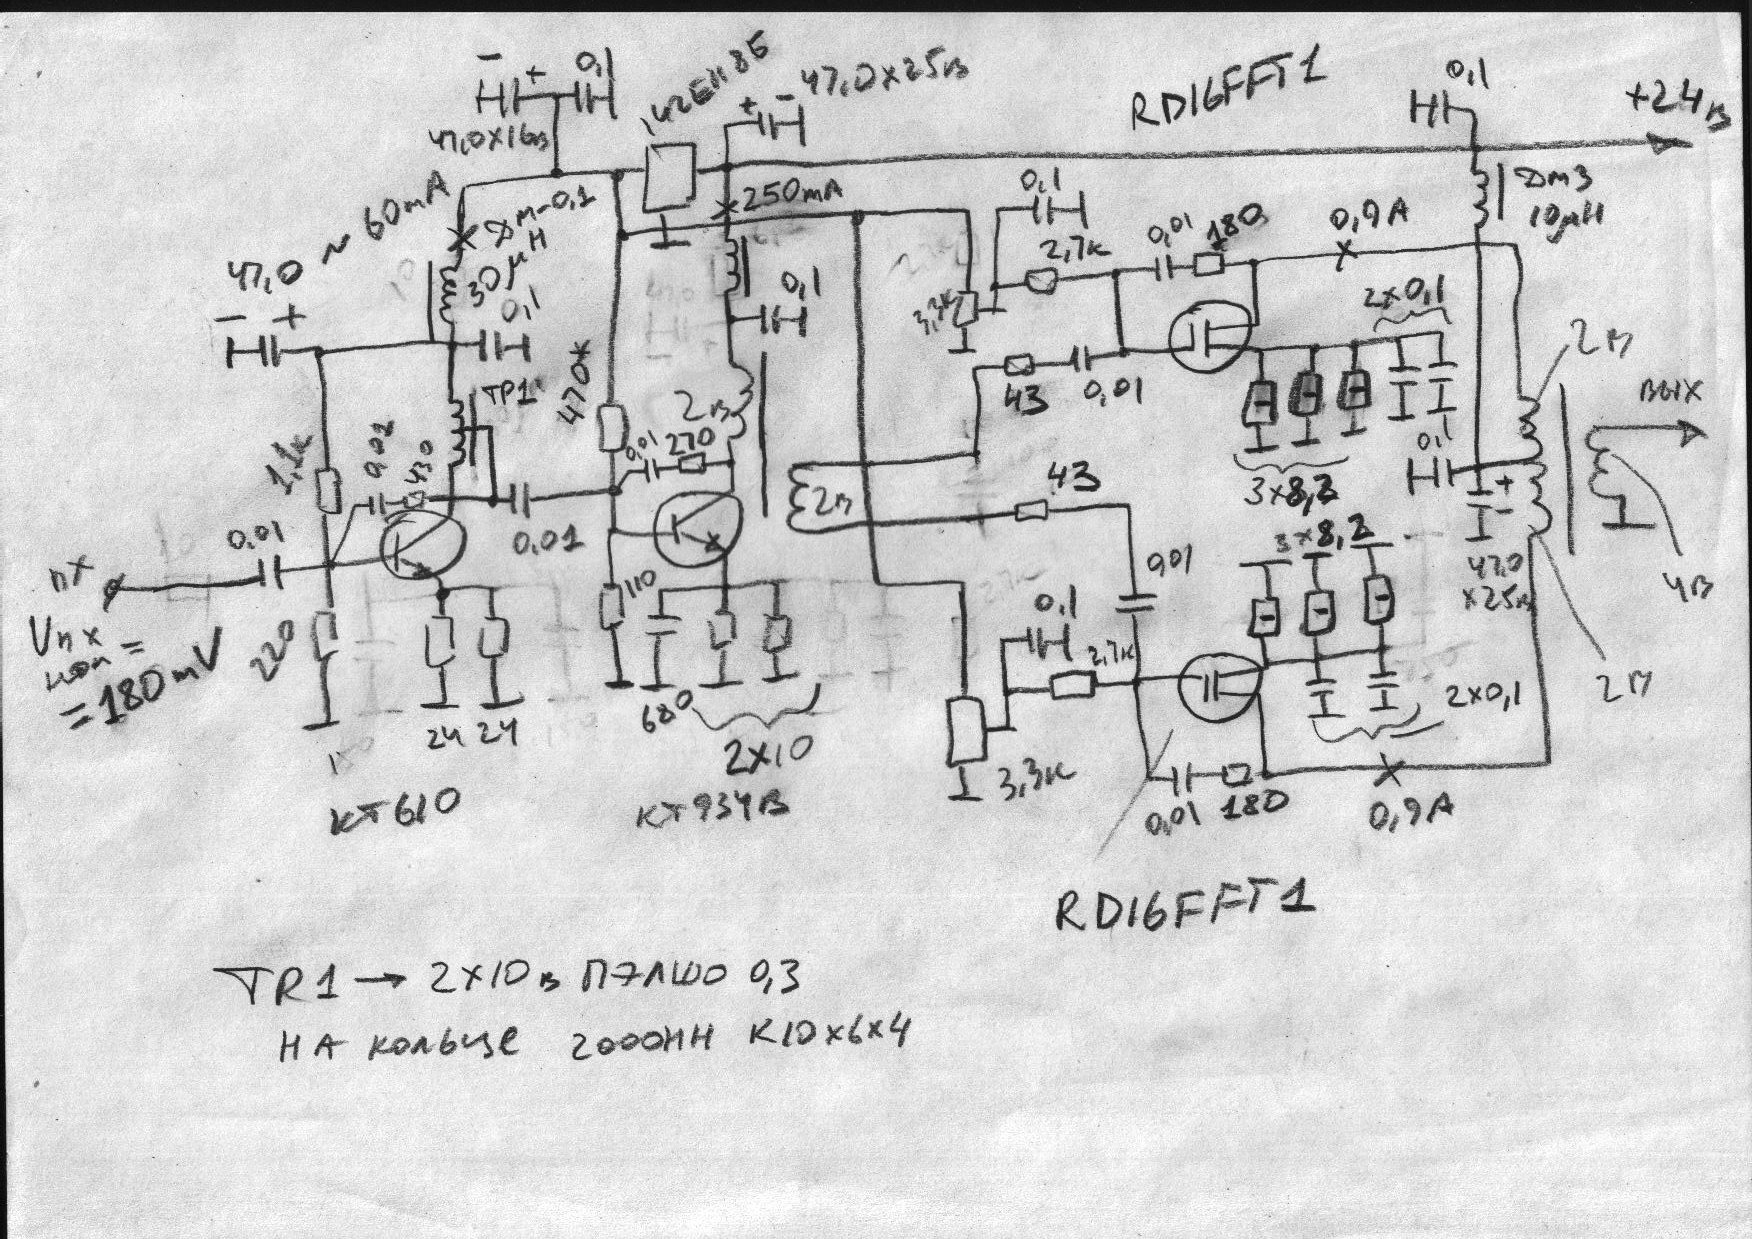 0,1
47,0x16в
142ЕН8Б
47,0x25в
RD16FFT1
0,1
+24в
~ 60mA
ДМ-0,1
30µH
250mA
0,1
2,7к
0,01
180
0,9А
ДМ3
10µH
47,0
0,1
0,1
3,3к
2x0,1
2в
TP1
470*
43
0,01
ВЫХ
1,2к
0,01
430
2в
0,01
270
3x8,2
0,1
2в
43
3x8,2
0,01
0,01
вх
47,0
x25в
4в
Uвх
ном =
=180mV
220
110
0,01
0,1
2,7к
2x0,1
2в
24
24
680
2x10
3,3к
0,01
180
0,9А
КТ610
КТ934В
RD16FFT1
TR1 → 2x10в ПЭЛШО 0,3
НА кольце 2000НН К10x6x4